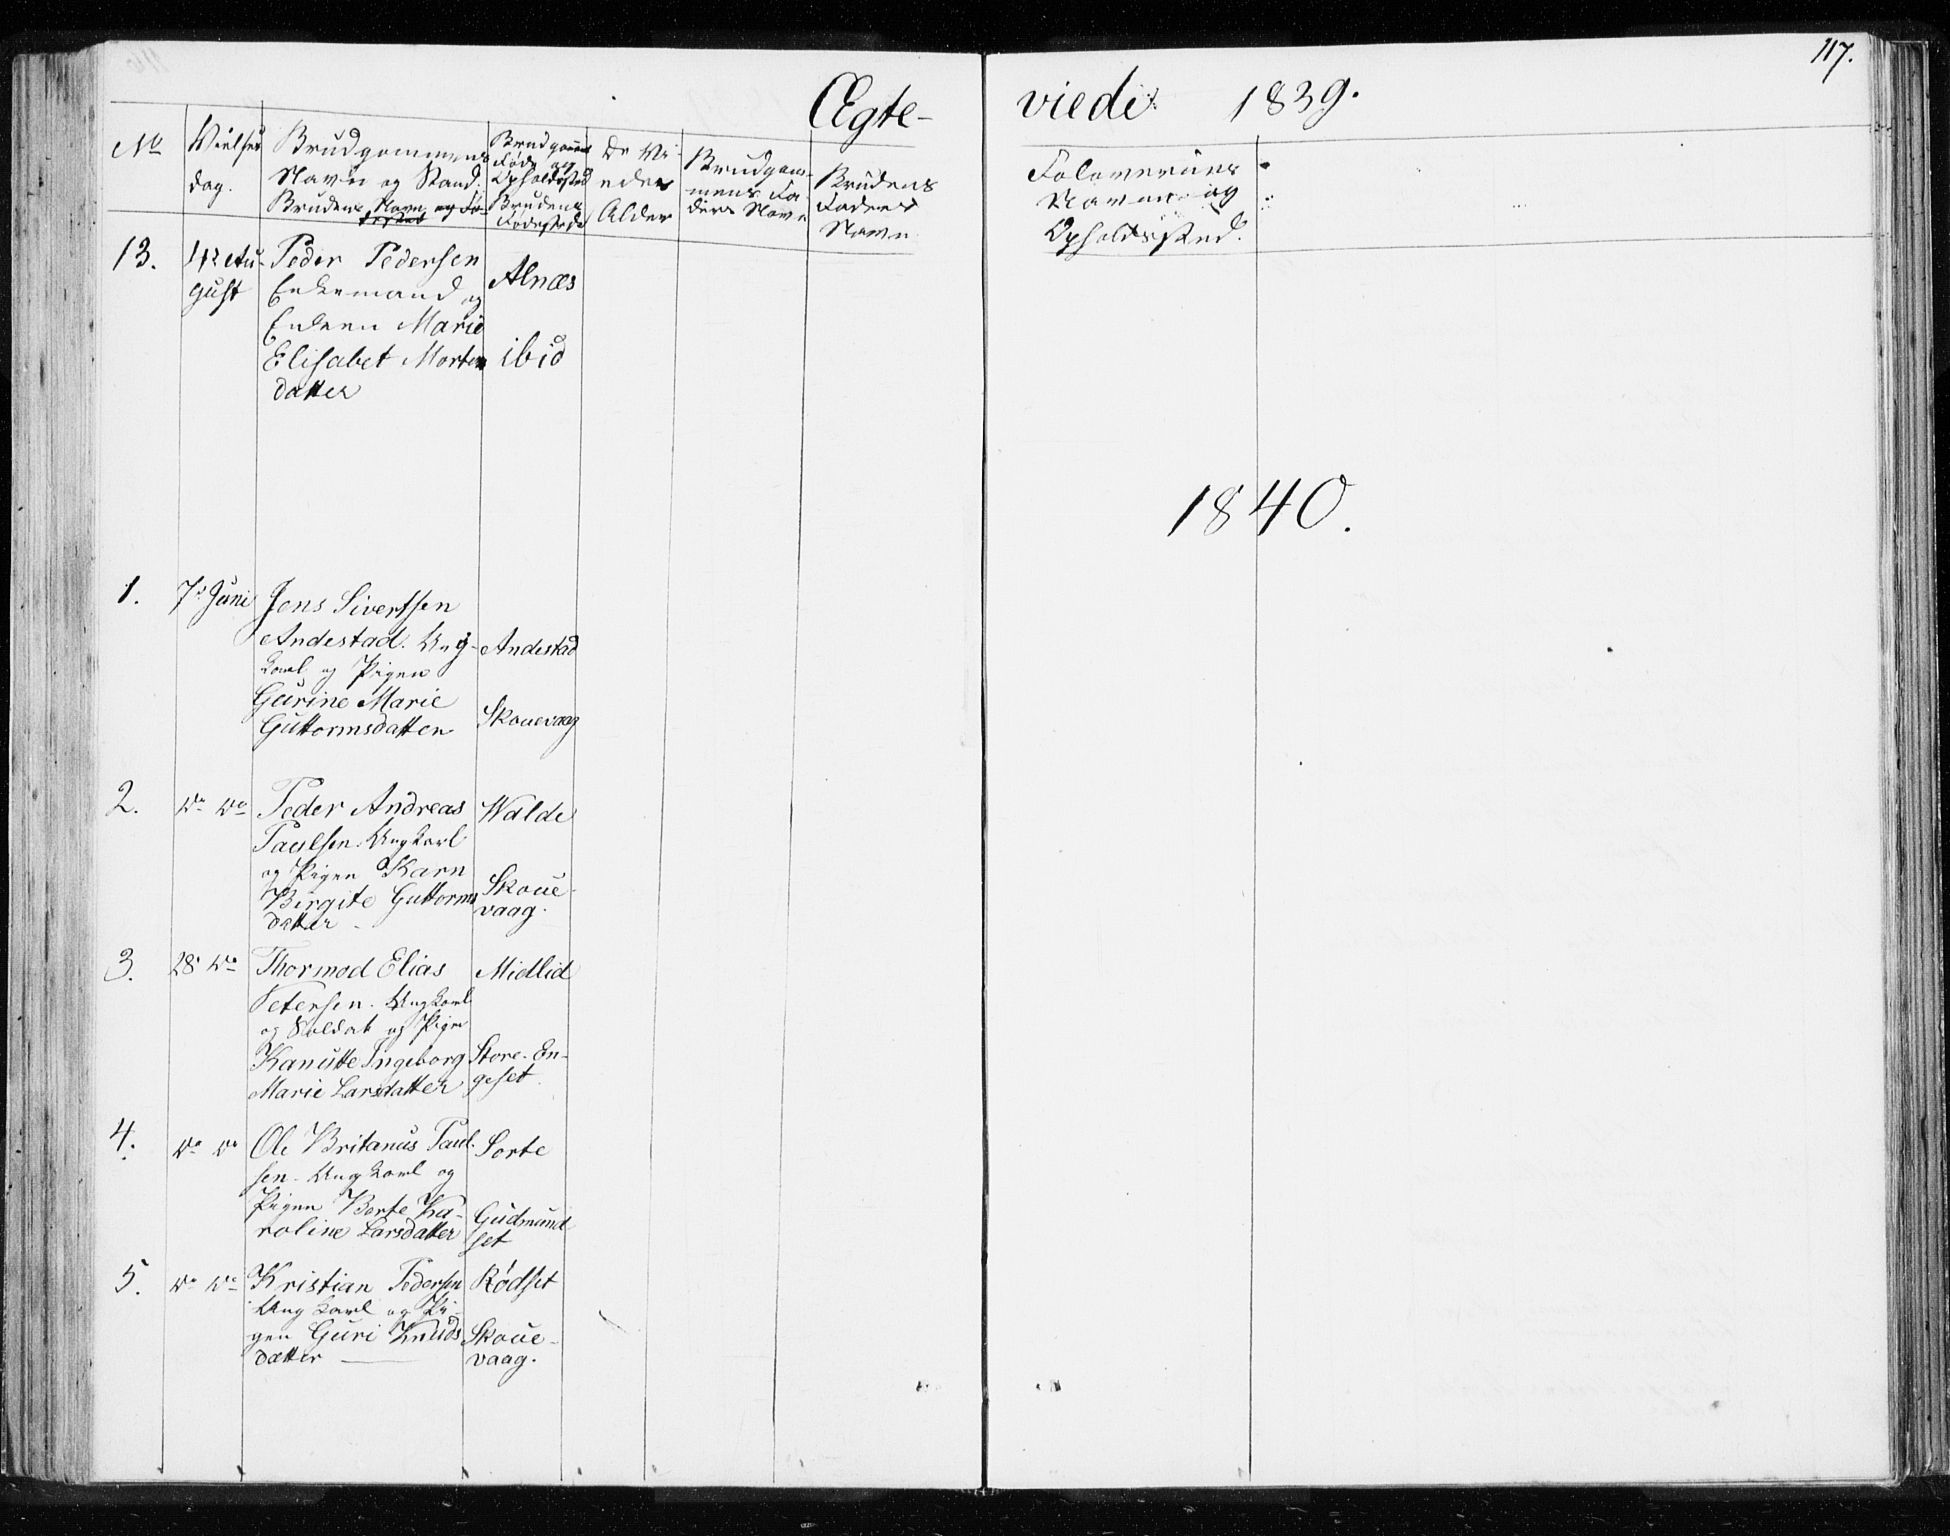 117.
Ægte- viede 1839.
No
Vielses
dag.
Brudgommens
Navn og Stand.
Brudens Navn og Fø-
Brudgoms
Føde og
Opholdssted
Brudens
Fødested
De Vi-
edes
Alder
Brudgom-
mens Fa-
ders Navn
Brudens
Faders
Navn
Forloverens
Navn og
Opholdssted.
13.
4de Au-
gust
Peder Pedersen
Enkemand og
Enken Marie
Elisabet Morten
datter
Alnæs
ibid
1840.
1.
7de Juni
Jens Sivertsen
Andestad. Ung-
karl og Pigen
Gurine Marie
Guttormsdatter
Andestad
Skouevaag
2.
Do Do
Peder Andreas
Paulsen. Ungkarl
og Pigen Karn
Birgite Guttorms
datter -
Walde
Skoue-
vaag.
3.
28 Do
Thormod Elias
Petersen. Ungkarl
og Soldat og Pige
Kanutte Ingeborg
Marie Larsdatter
Midlid
Store-En-
geset.
4.
Do Do
Ole Britanus Paul-
sen. Ungkarl og
Pigen Berte Ka-
roline Larsdatter
Sorte
Gudmund
set
5.
Do Do
Kristian Pedersen
Ungkarl og Pi-
gen Guri Knuds
datter
Rødset
Skoue-
vaag.